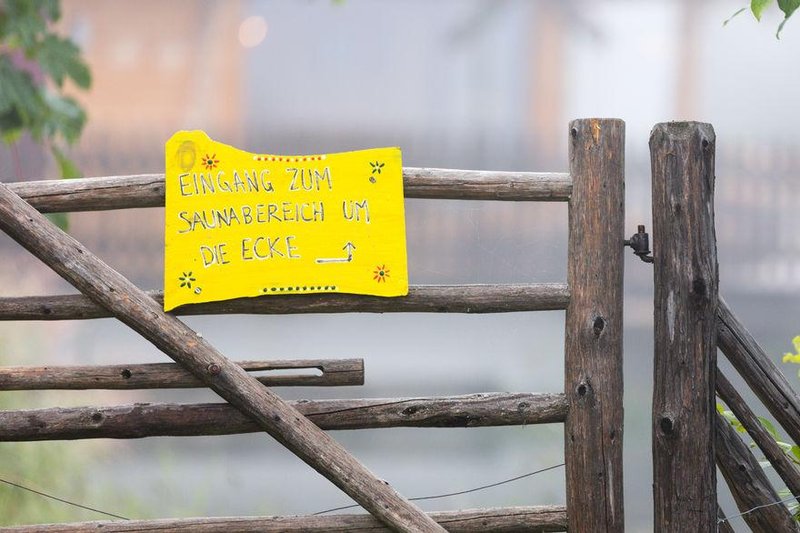 EINGANG ZUM
SAUNABEREICH UM
DIE ECKE